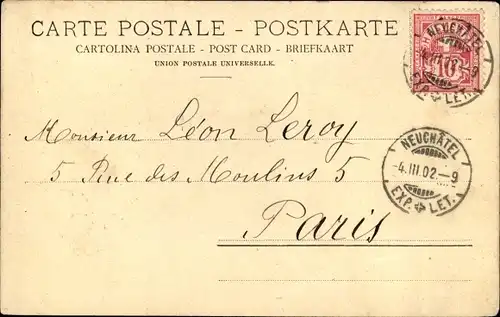 CARTE POSTALE - POSTKARTE
CARTOLINA POSTALE - POST CARD - BRIEFKAART
UNION POSTALE UNIVERSELLE.
NEUCHÂTEL
10
EXP. LET.
Monsieur Léon Leroy
5 Rue des Moulins 5
Paris
NEUCHÂTEL
-4.III.02.-9
EXP. LET.